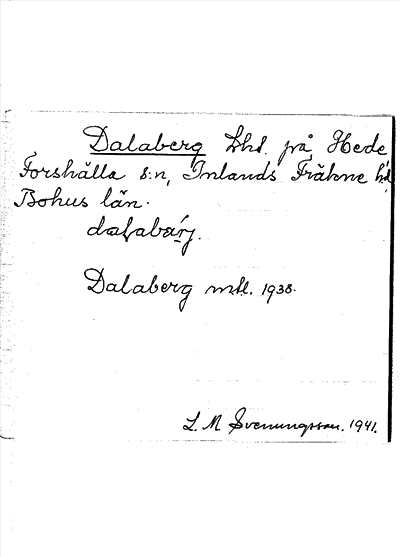 Dalaberg Lhl. på Hede
Forshälla s:n, Inlands Fräkne hd.
Bohus län.
dalabærj.
Dalaberg mtl. 1938.
L. M Svenungsson. 1941.